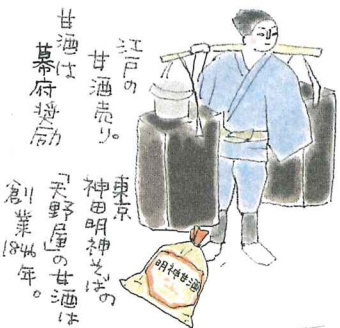 江戸の
甘酒売り。
甘酒は
幕府奨励
東京
神田明神そばの
「天野屋」の甘酒は
創業1846年。
明神甘酒